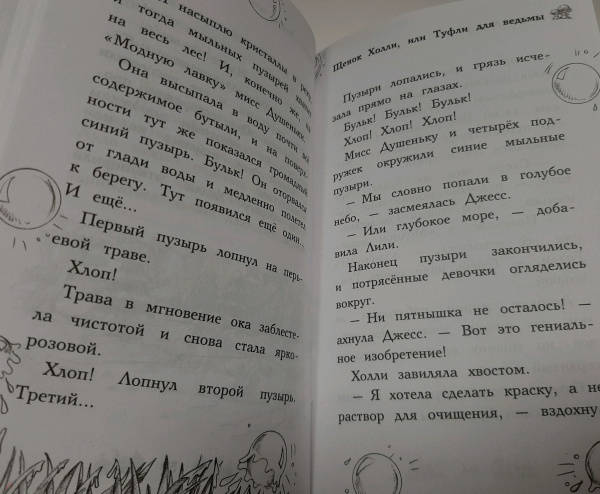 насыплю кристаллы в
и тогда мыльных пузырей
на весь лес! И, конечно же, на
«Модную лавку» мисс Душеньки.
Она высыпала в воду почти всё
содержимое бутыли, и на поверх-
ности тут же показался громадный
синий пузырь. Бульк! Он оторвался
от глади воды и медленно полетел
к берегу. Тут появился ещё один...
И ещё...
Первый пузырь лопнул на перь-
евой траве.
Хлоп!
Трава в мгновение ока заблесте-
ла чистотой и снова стала ярко-
розовой.
Хлоп! Лопнул второй пузырь.
Третий...
Щенок Холли, или Туфли для ведьмы
Пузыри лопались, и грязь исче-
зала прямо на глазах.
Бульк! Бульк! Бульк!
Хлоп! Хлоп! Хлоп!
Мисс Душеньку и четырёх под-
ружек окружили синие мыльные
пузыри.
— Мы словно попали в голубое
небо, — засмеялась Джесс.
— Или глубокое море, — доба-
вила Лили.
Наконец пузыри закончились,
и потрясённые девочки огляделись
вокруг.
— Ни пятнышка не осталось! —
ахнула Джесс. — Вот это гениаль-
ное изобретение!
Холли завиляла хвостом.
— Я хотела сделать краску, а не
раствор для очищения, — вздохну-